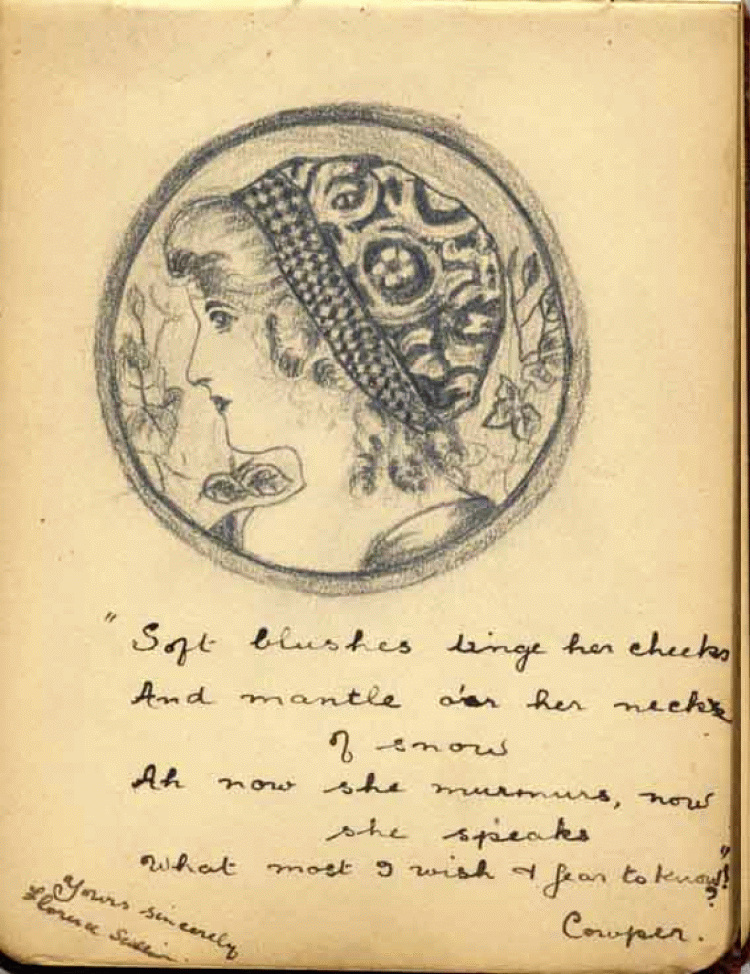 " Soft blushes tinge her cheeks
And mantle o'er her neck
of snow
Ah now she murmurs, now
she speaks
What most I wish & fear to know!"
?
Cowper.
Yours sincerely
Florence